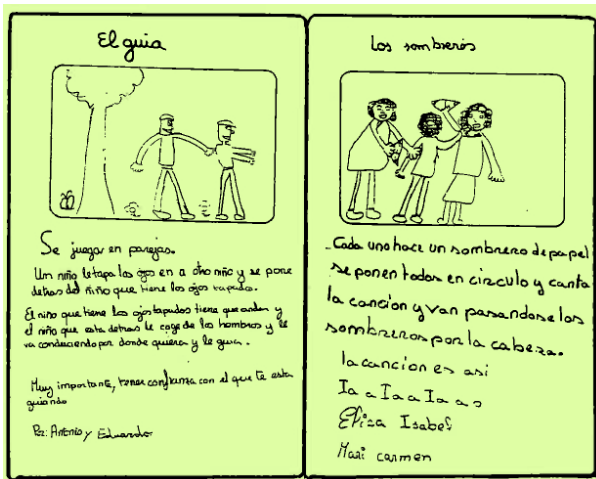 El guia
Se juega en parejas.
Un niño le tapa los ojos en a otro niño y se pone
detras del niño que tiene los ojos tapados.
El niño que tiene los ojos tapados tiene que andar y
el niño que esta detras le coge de los hombros y le
va conduciendo por donde quiera y le guia.
Muy importante, tener confianza con el que te esta
guiando
Por: Antonio y Eduardo
Los sombreros
Cada uno hace un sombrero de papel
se ponen todos en circulo y canta
la cancion y van pasandose los
sombreros por la cabeza.
la cancion es asi
Ia a Ia a Ia a o
Elisa Isabel
Mari carmen